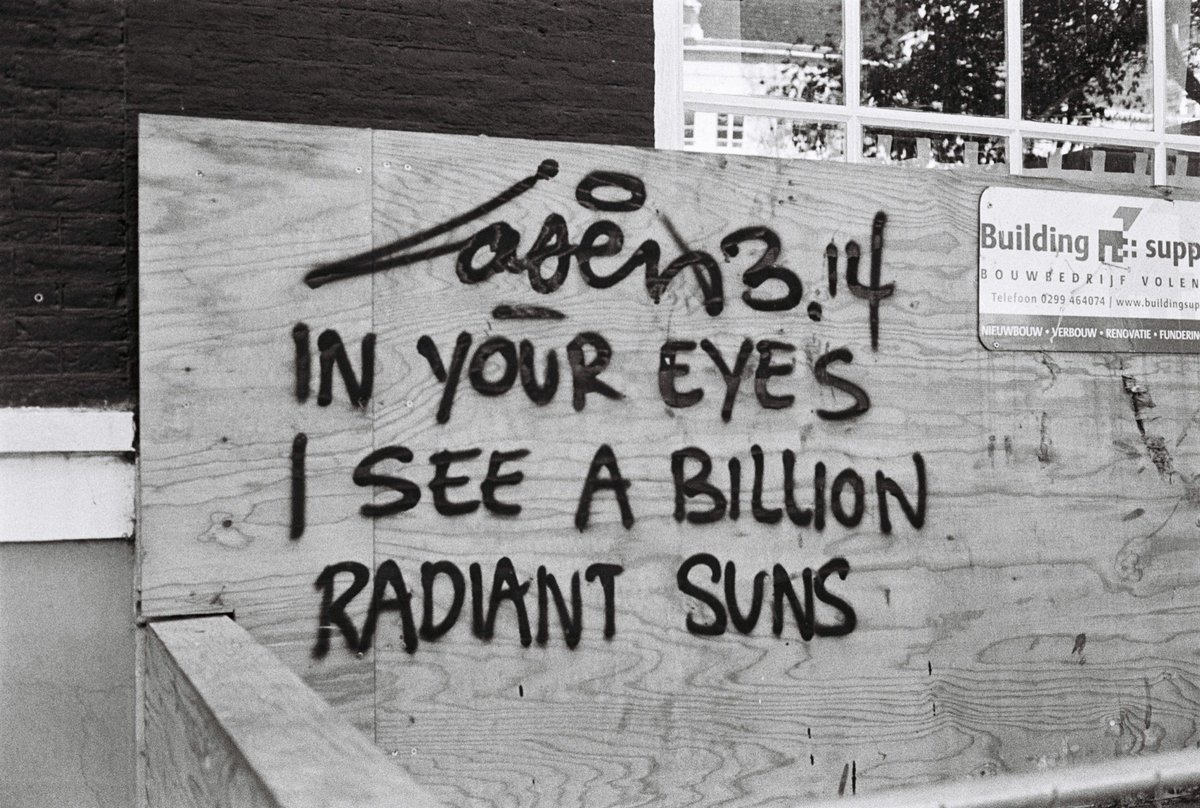 Laser 3.14
IN YOUR EYES
I SEE A BILLION
RADIANT SUNS
Building supp
BOUWBEDRIJF VOLEN
Telefoon 0299 464074 | www.buildingsup
NIEUWBOUW • VERBOUW • RENOVATIE • FUNDERIN